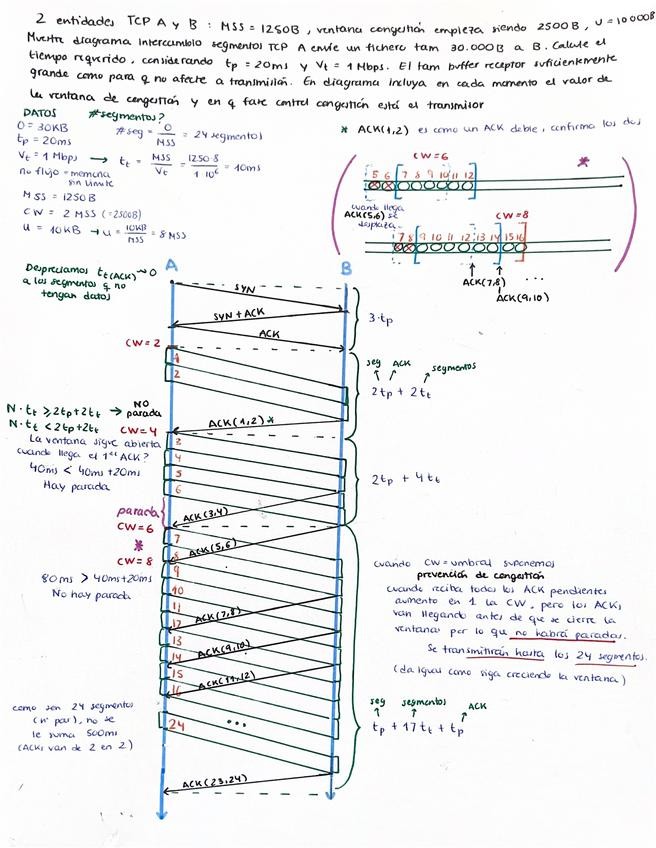 2 entidades TCP A y B : MSS = 1250B, ventana congestión empieza siendo 2500B, U = 10000B
Muestre diagrama intercambio segmentos TCP A envíe un fichero tam 30.000B a B. Calcule el
tiempo requerido, considerando tp = 20ms y Vt = 1 Mbps. El tam buffer receptor suficientemente
grande como para q no afecte a transmisión. En diagrama incluya en cada momento el valor de
la ventana de congestión y en q fase control congestión está el transmisor
DATOS
O = 30KB
tp = 20ms
Vt = 1 Mbps → tt = MSS/Vt = 1250·8/1·10⁶ = 10ms
no flujo = memoria
sin límite
MSS = 1250B
CW = 2 MSS (=2500B)
u = 10KB → u = 10KB/MSS = 8 MSS
#segmentos?
#seg = O/MSS = 24 segmentos
* ACK(1,2) es como un ACK doble, confirma los dos
CW=6
*
5 6 7 8 9 10 11 12
cuando llega
ACK(5,6) se
desplaza
CW=8
7 8 9 10 11 12 13 14 15 16
ACK(7,8) ...
ACK(9,10)
Despreciamos tt(ACK) → 0
a los segmentos q no
tengan datos
A
B
SYN
SYN + ACK
ACK
3·tp
CW=2
1
2
seg ACK segmentos
2tp + 2tt
N·tt ≥ 2tp+2tt → NO parada
N·tt < 2tp+2tt
ACK(1,2)*
CW=4
La ventana sigue abierta
cuando llega el 1er ACK?
40ms < 40ms + 20ms
Hay parada
3
4
5
6
2tp + 4tt
parada
ACK(3,4)
CW=6
7
*
ACK(5,6)
CW=8
8
9
80ms > 40ms+20ms
No hay parada
10
11
ACK(7,8)
12
13
ACK(9,10)
14
15
ACK(11,12)
16
cuando CW=umbral suponemos
prevención de congestión
cuando reciba todos los ACK pendientes
aumento en 1 la CW, pero los ACKs
van llegando antes de que se cierre la
ventana por lo que no habrá paradas.
Se transmitirán hasta los 24 segmentos.
(da igual como siga creciendo la ventana)
como son 24 segmentos
(nº par), no se
le suma 500ms
(ACKs van de 2 en 2)
24
...
seg segmentos ACK
tp + 17tt + tp
ACK(23,24)